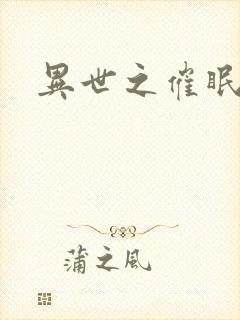 異世之催眠
蒲之風